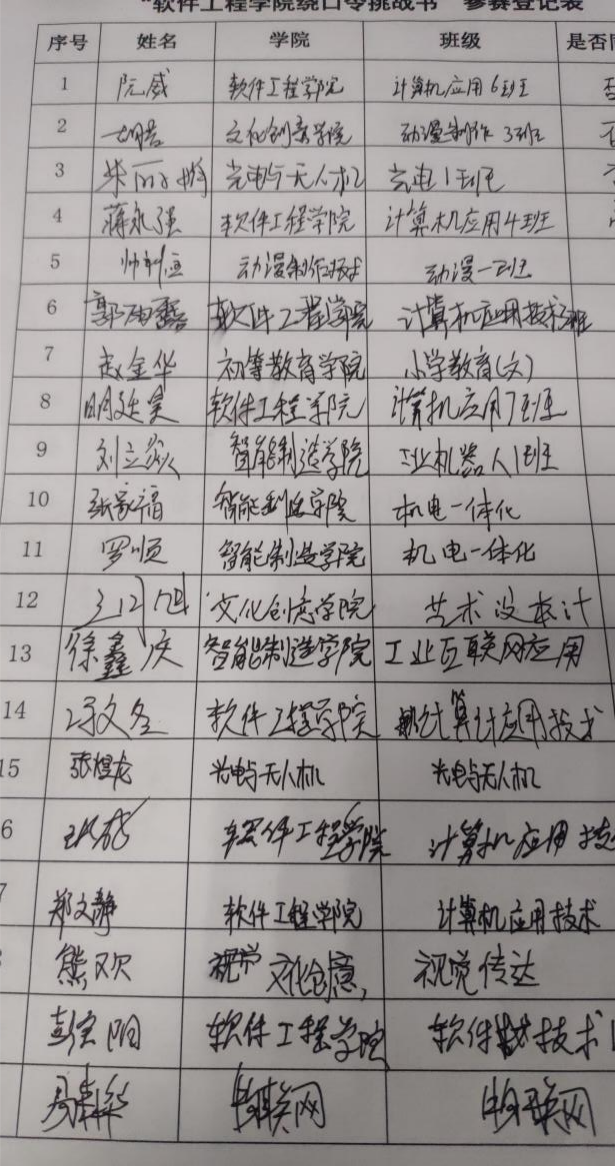 "软件工程学院绕口令挑战书" 参赛登记表
序号 姓名 学院 班级 是否同
1 阮威 软件工程学院 计算机应用6班 否
2 文化创意学院 动漫制作3班 否
3 光电与无人机 光电1班
4 蒋永强 软件工程学院 计算机应用4班
5 帅利恒 动漫制作技术 动漫一班
6 软件工程学院 计算机应用技术3班
7 赵金华 初等教育学院 小学教育(文)
8 明延昊 软件工程学院 计算机应用7班
9 刘立焱 智能制造学院 工业机器人1班
10 张家福 智能制造学院 机电一体化
11 罗顺 智能制造学院 机电一体化
12 文化创意学院 艺术设计
13 徐鑫庆 智能制造学院 工业互联网应用
14 冯文冬 软件工程学院 计算计应用技术
15 张煜龙 光电与无人机 光电与无人机
6 软件工程学院 计算机应用技
7 郑文静 软件工程学院 计算机应用技术
熊欢 文化创意 视觉传达
彭宝阳 软件工程学院 软件技术
物联网 物联网